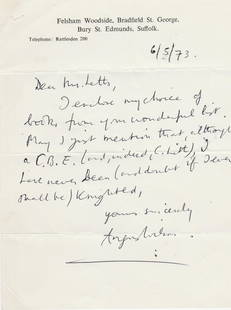 Felsham Woodside, Bradfield St. George,
Bury St. Edmunds, Suffolk.
Telephone: Rattlesden 200
6/5/73.
Dear Mr. Letts,
I enclose my choice of
books from your wonderful list.
May I just mention that, although
a C.B.E. (and, indeed, C.Litt), I
have never been (and doubt if I ever
shall be) Knighted,
yours sincerely
Angus Wilson